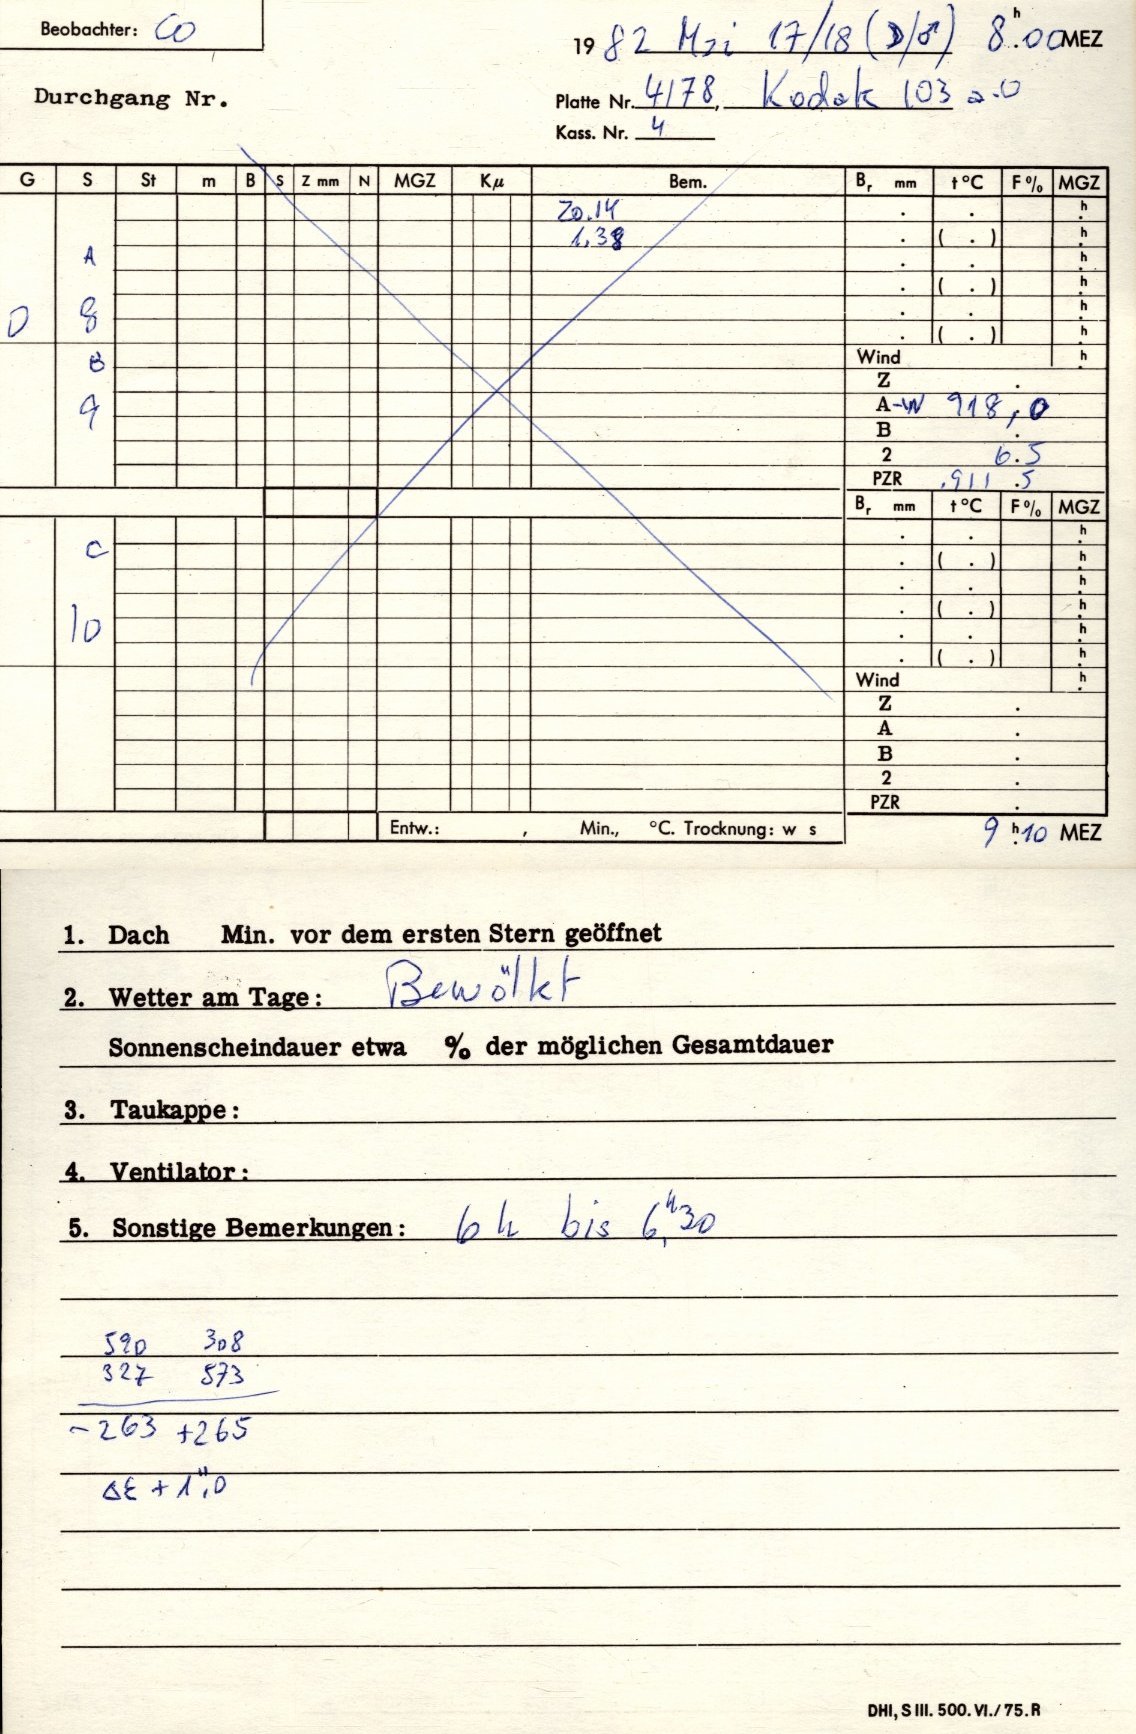 Beobachter: CO
1982 Mai 17/18 (☽/♂) 8.ʰ00 MEZ
Durchgang Nr.
Platte Nr. 4178, Kodak 103 a-O
Kass. Nr. 4
G S St m B S Z mm N MGZ Kμ Bem. Bᵣ mm t °C F % MGZ
20.14 . . h.
1.38 . ( . ) h.
A . . h.
. ( . ) h.
D 8 . . h.
. ( . ) h.
B Wind h.
Z .
9 A-W 918,0
B .
2 6.5
PZR 911.5
Bᵣ mm t °C F % MGZ
. . h.
C . ( . ) h.
. . h.
. ( . ) h.
10 . . h.
. ( . ) h.
Wind h.
Z .
A .
B .
2 .
PZR .
Entw.: , Min., °C. Trocknung: w s
9.ʰ10 MEZ
1. Dach Min. vor dem ersten Stern geöffnet
2. Wetter am Tage: Bewölkt
Sonnenscheindauer etwa % der möglichen Gesamtdauer
3. Taukappe:
4. Ventilator:
5. Sonstige Bemerkungen: 6 h bis 6,ʰ30
590 308
327 573
-263 +265
Δε + 1",0
DHI, S III. 500. VI./75. R